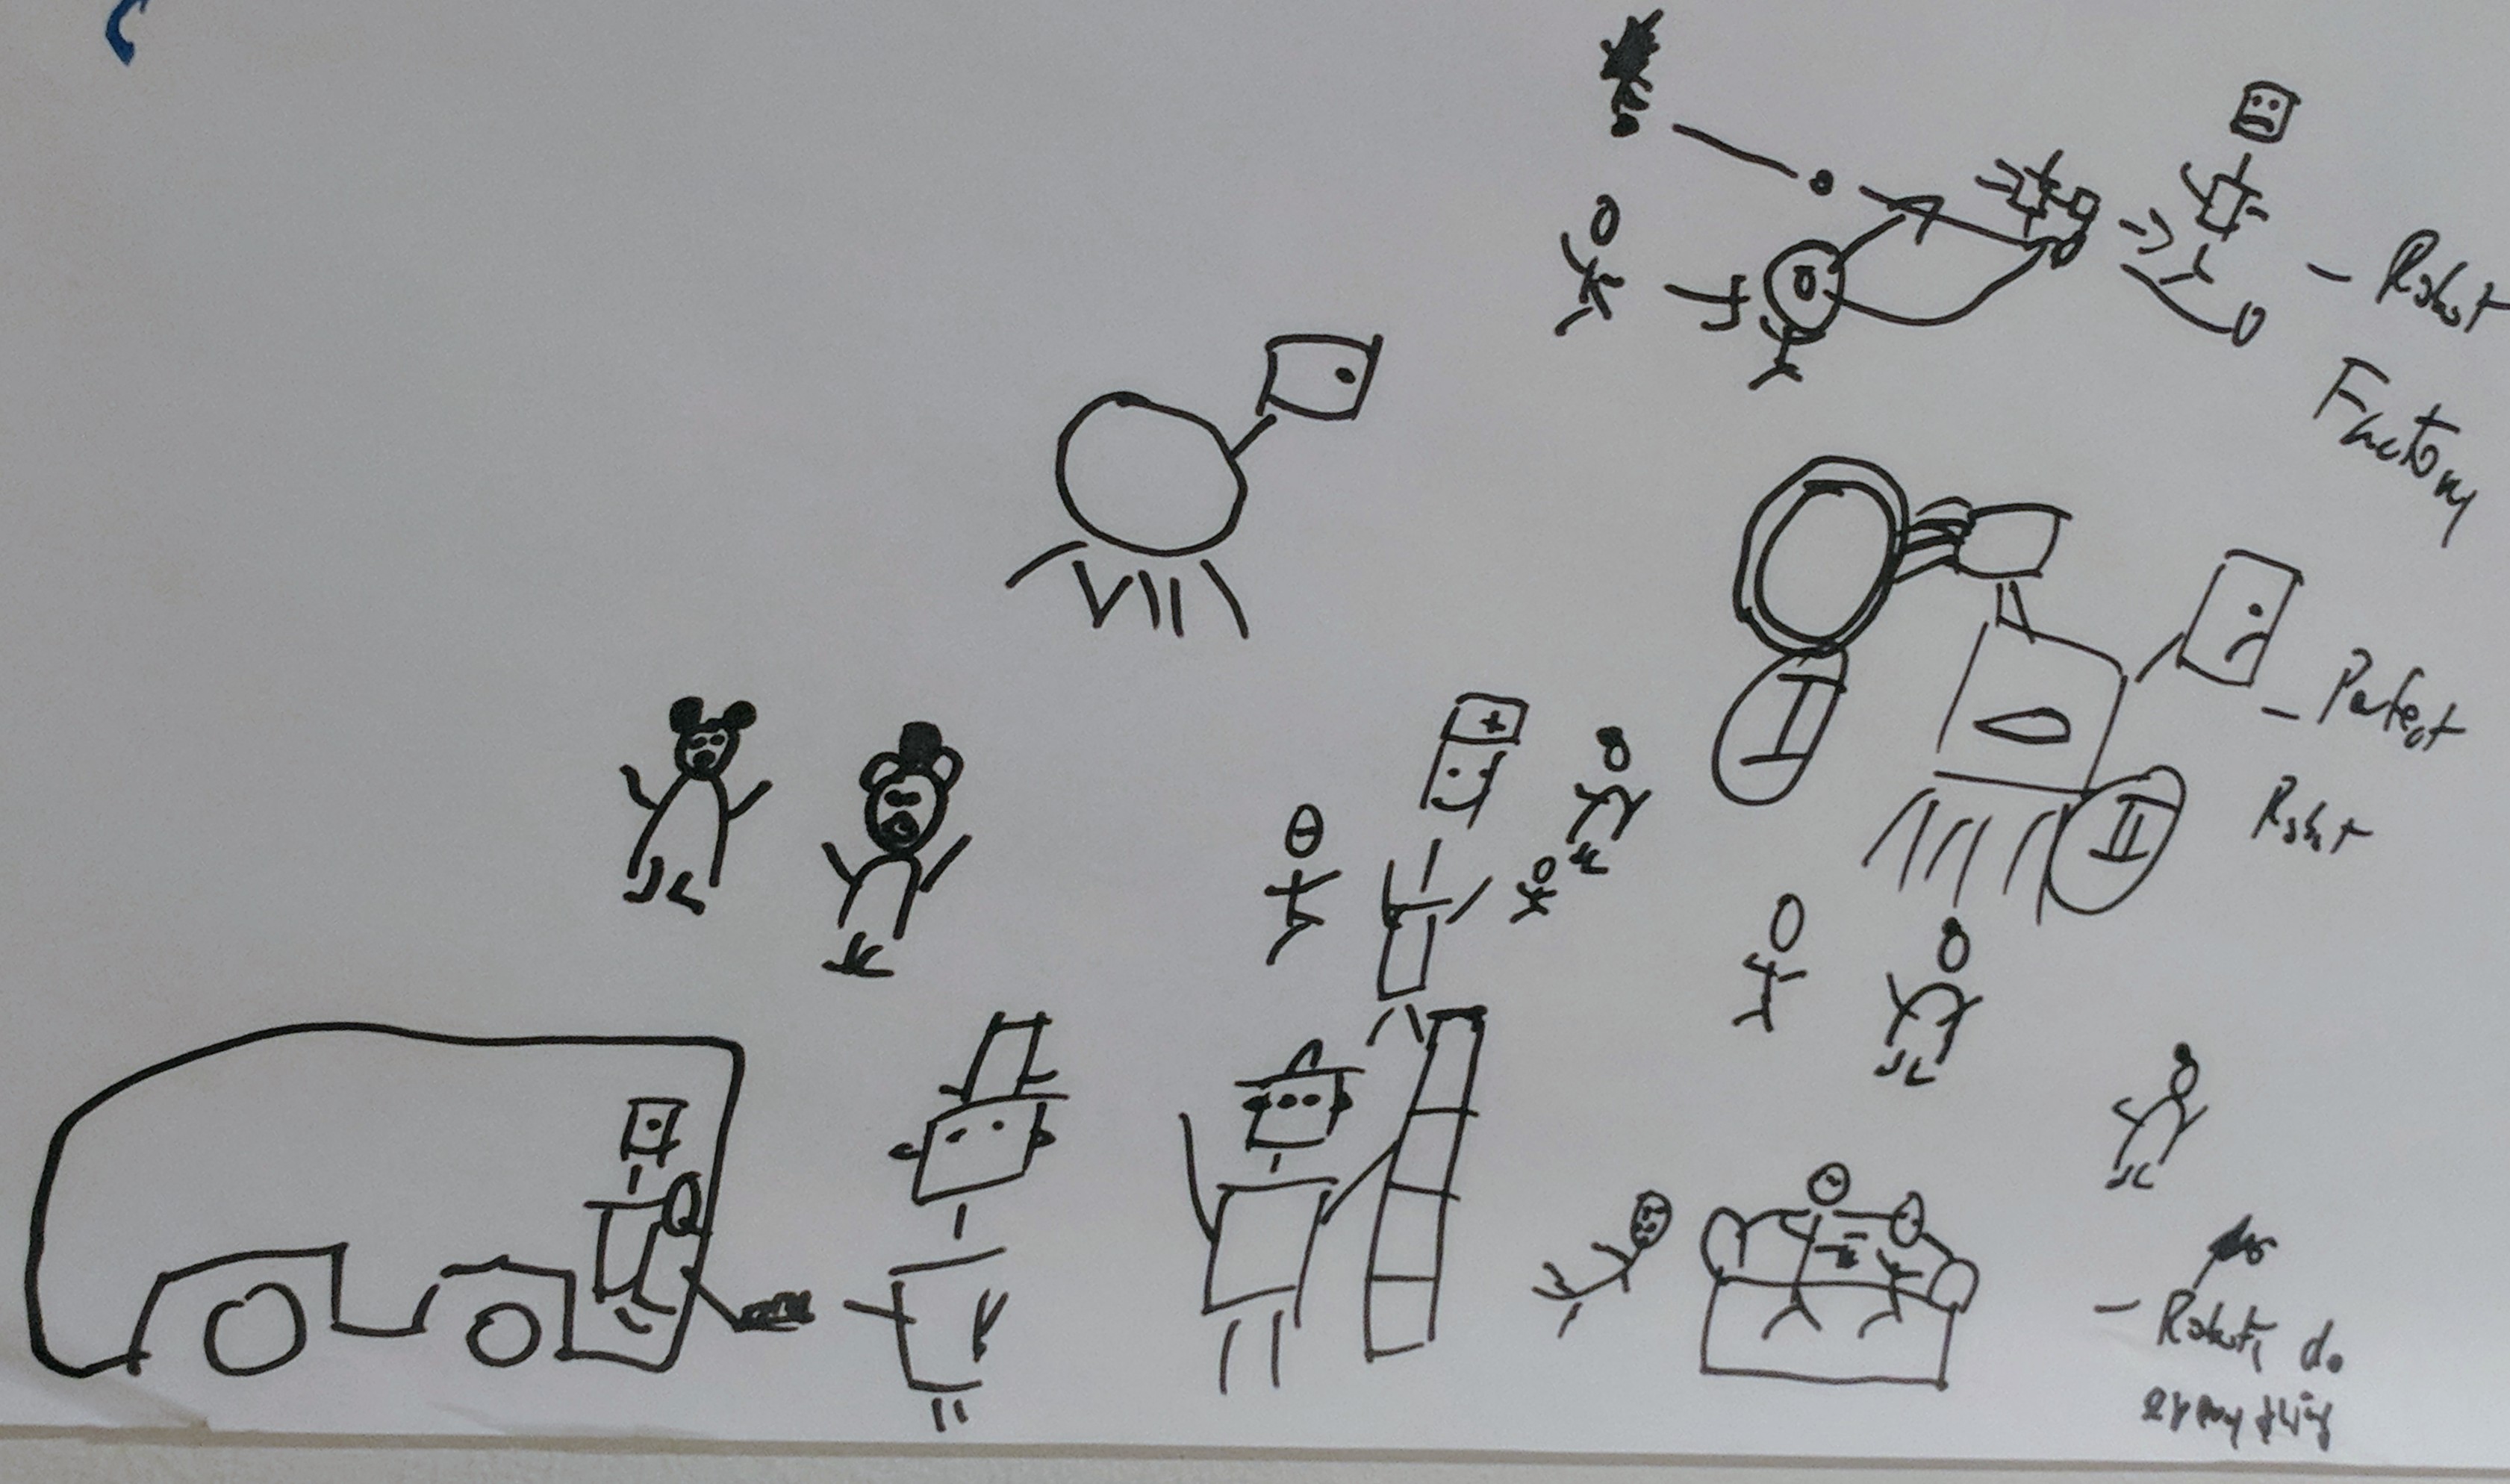 - Robot
Factory
- Perfect
Robot
I
II
- Robots do
everything